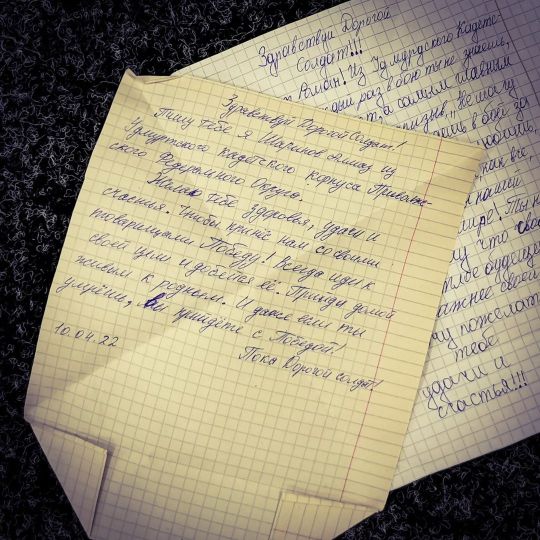 Здравствуй Дорогой Солдат!
Пишу тебе я Шакиров из
Удмуртского кадетского корпуса Приволж-
ского Федерального Округа.
Желаю тебе здоровья, удачи и
счастия. Чтобы принёс нам со своими
товарищами Победу! Всегда иди к
своей цели и добейся её. Приходи домой
живым к родным. И даже если ты
умрёшь, Вы прийдёте с Победой!
10.04.22
Пока Дорогой солдат!
Здравствуй Дорогой
Солдат!!!
Роман! Из Удмурдского Кадетс-
раз в бою ты не знаешь,
самым главным
призыв, "Не могу
в бой за
как все,
нашей
мире! Ты на
что своё
тебе будущем
важнее своей
чу пожелать
тебе
удачи и
счастья!!!